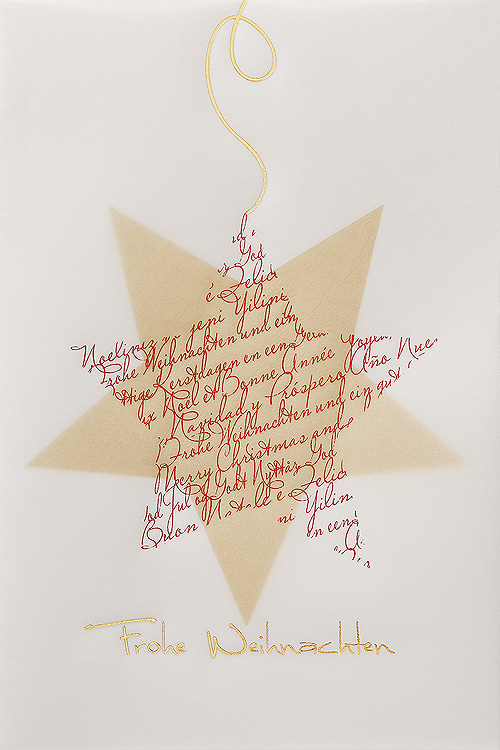 God
é Felic
Noeliniz jeni Yilini
Frohe Weihnachten und ein
tige Kerstdagen en een
x Noël et Bonne Année
Navidad y Próspero Año Nue
Frohe Weihnachten und ein gut
Merry Christmas and
od Jul og Godt Nyttår God
Buon Natale e Felic
ni Yilin
n een
Frohe Weihnachten